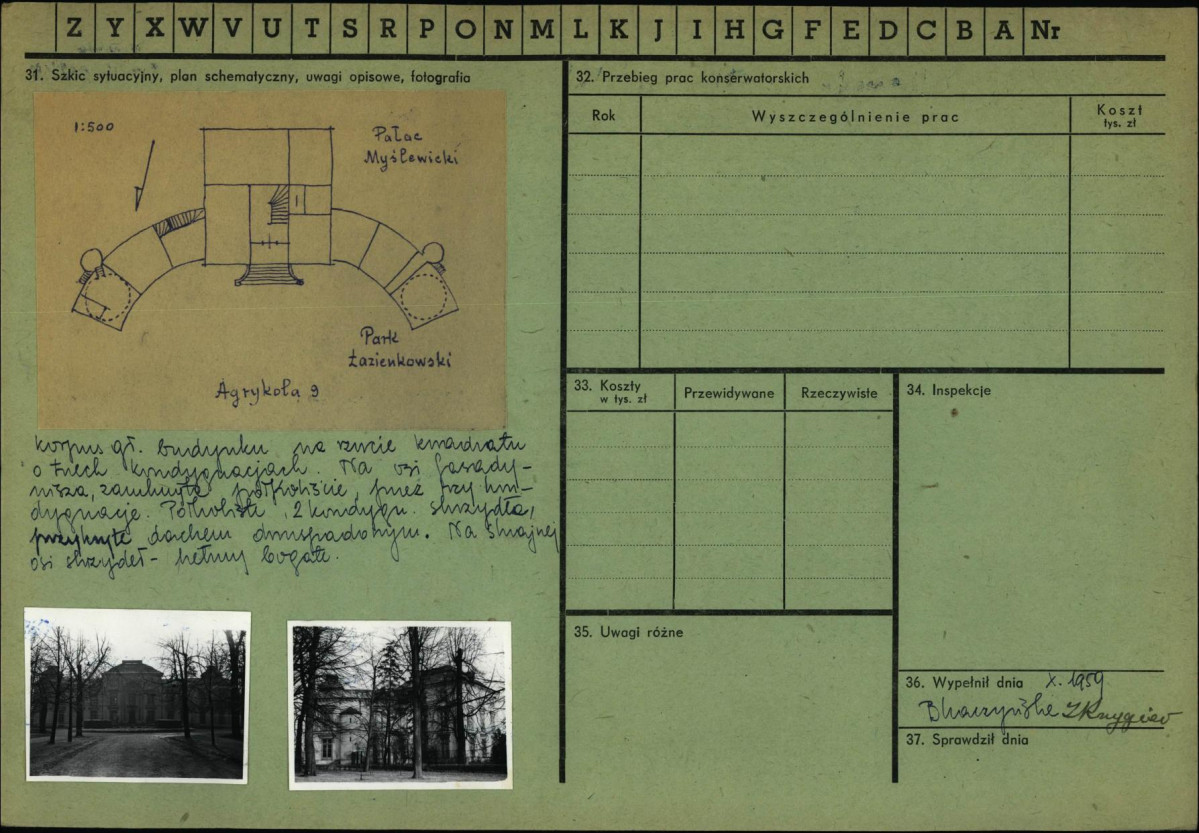 Z Y X W V U T S R P O N M L K J I H G F E D C B A Nr
31. Szkic sytuacyjny, plan schematyczny, uwagi opisowe, fotografia
1:500
Pałac
Myślewicki
Park
Łazienkowski
Agrykola 9
korpus gł. budynku na rzucie kwadratu
o trzech kondygnacjach. Na osi fasady-
nisza, zamknięta półkoliście, przez trzy kon-
dygnacje. Półkoliste, 2 kondygn. skrzydła,
przykryte dachem dwuspadowym. Na skrajnej
osi skrzydeł - hełmy bogate.
32. Przebieg prac konserwatorskich
Rok
Wyszczególnienie prac
Koszt
tys. zł
33. Koszty
w tys. zł
Przewidywane
Rzeczywiste
34. Inspekcje
35. Uwagi różne
36. Wypełnił dnia X. 1959
37. Sprawdził dnia